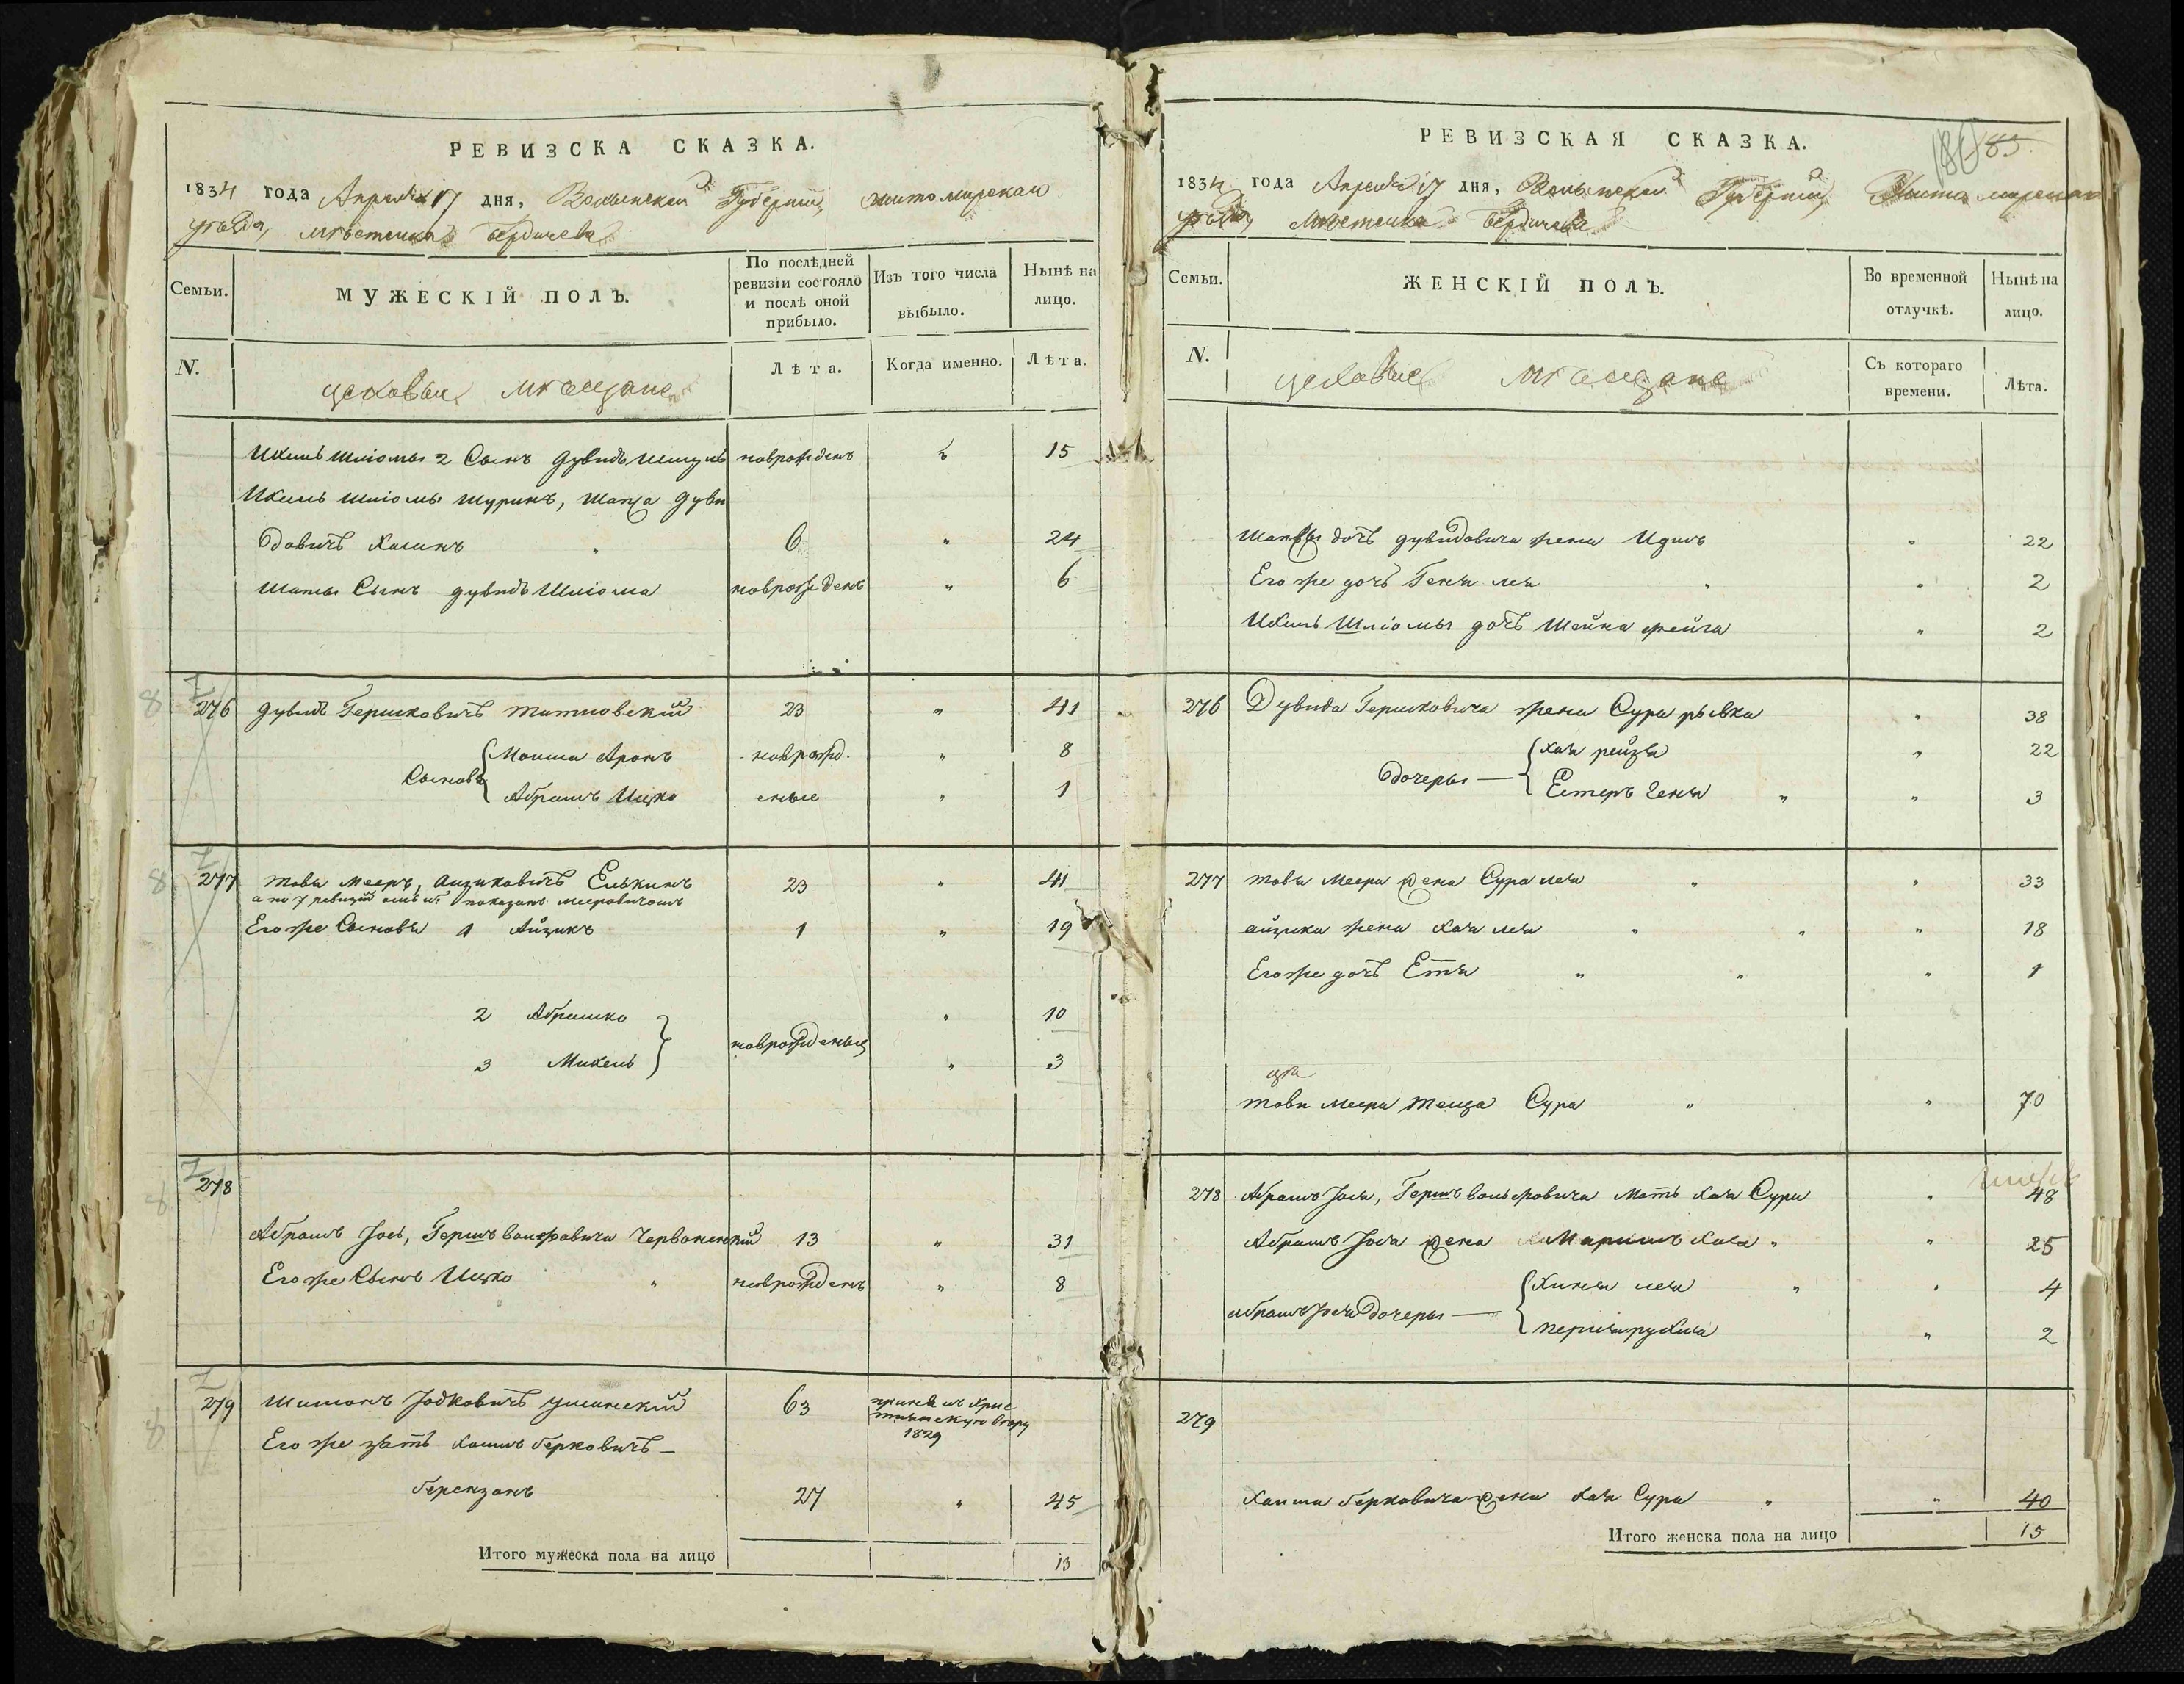 РЕВИЗСКА СКАЗКА.
1834 года Апреля 17 дня, Волынской Губерніи, житомирскаго
уѣзда, мѣстечка Бердичева
Семьи.
МУЖЕСКІЙ ПОЛЪ.
По послѣдней ревизіи состояло и послѣ оной прибыло.
Изъ того числа выбыло.
Нынѣ на лицо.
N.
цеховые мѣщане
Лѣта.
Когда именно.
Лѣта.
Ихиль Шліомы 2 Сынъ дувидъ новрожденъ 15
Ихиль Шліомы Шуринъ, Шапса Дуви
довичъ 6 " 24
Шапсы Сынъ дувидъ Шліома новрожденъ " 6
276 дувидъ Гершковичъ Титиовскій 23 " 41
Сыновя { Моища Аронъ новрожд. " 8
Абрамъ Ицко еные " 1
277 товя Мееръ, Аизиковичъ Елькинъ 23 " 41
а по 7 ревизіи показанъ Мееровичомъ
Его же Сыновя 1 Айзикъ 1 " 19
2 Абрамко " 10
3 Михель } новрожденые " 3
278
Абрамъ Іось, Гершъ вольфовичи Червоненскій 13 " 31
Его же Сынъ Ицко " новрожденъ " 8
279 Шимонъ Іодковичъ Уманскій 63 принялъ Хрис
тианскую вѣру
1829
Его же зять Хаимъ берковичъ —
берензонъ 27 " 45
Итого мужеска пола на лицо 13
РЕВИЗСКАЯ СКАЗКА.
186 185.
1834 года Апреля 17 дня, Волынской Губерніи, Житомирскаго
уѣзда, Мѣстечка Бердичева
Семьи.
ЖЕНСКІЙ ПОЛЪ.
Во временной отлучкѣ.
Нынѣ на лицо.
N.
цеховые мѣщане
Съ котораго времени.
Лѣта.
Шапсы дувидовича жена Идись " 22
Его же дочъ Геня лея " " 2
Ихиль Шліомы дочъ Шейна фейга " 2
276 Дувида Гершковича жена Сура рывка " 38
Дочеры — { хая рейзя " 22
Естеръ геня " " 3
277 товя Меера жена Сура лея " " 33
айзика жена хая лея " " " 18
Его же дочъ Етя " " " 1
товя Меера теща Сура " " 70
278 Абрамъ Іося, Гершъ вольфовича Мать хая Сура " 48
Абрамъ Іося жена Маримъ хася " " 25
абрамъ Іося Дочеры — { хиня лея " " 4
перля рухля " 2
279
Хаима берковича жена хая Сура " " 40
Итого женска пола на лицо 15